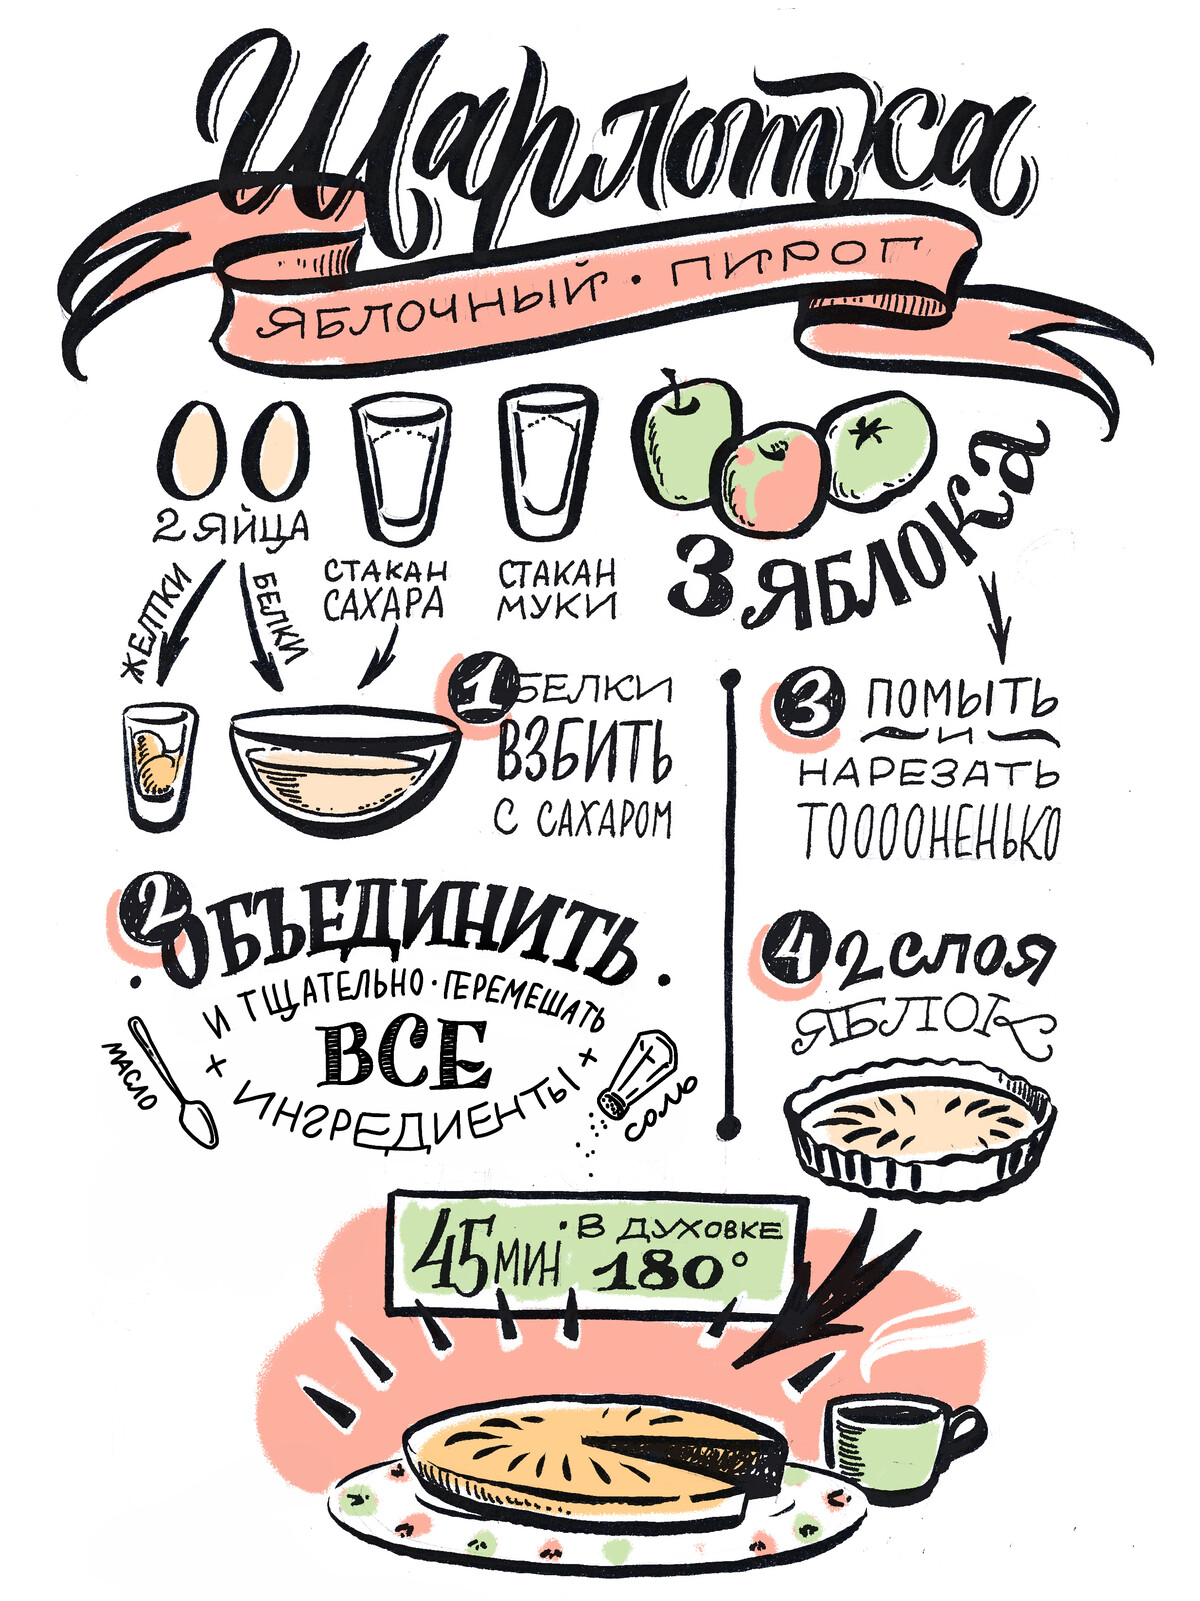 Шарлотка
ЯБЛОЧНЫЙ · ПИРОГ
2 ЯЙЦА
СТАКАН
САХАРА
СТАКАН
МУКИ
3 ЯБЛОКА
ЖЕЛТКИ
БЕЛКИ
1 БЕЛКИ
ВЗБИТЬ
С САХАРОМ
2 ОБЪЕДИНИТЬ
И ТЩАТЕЛЬНО · ПЕРЕМЕШАТЬ
ВСЕ
ИНГРЕДИЕНТЫ
МАСЛО
СОЛЬ
3 ПОМЫТЬ
И
НАРЕЗАТЬ
ТООООНЕНЬКО
4 2 СЛОЯ
ЯБЛОК
45 МИН · В ДУХОВКЕ
180°